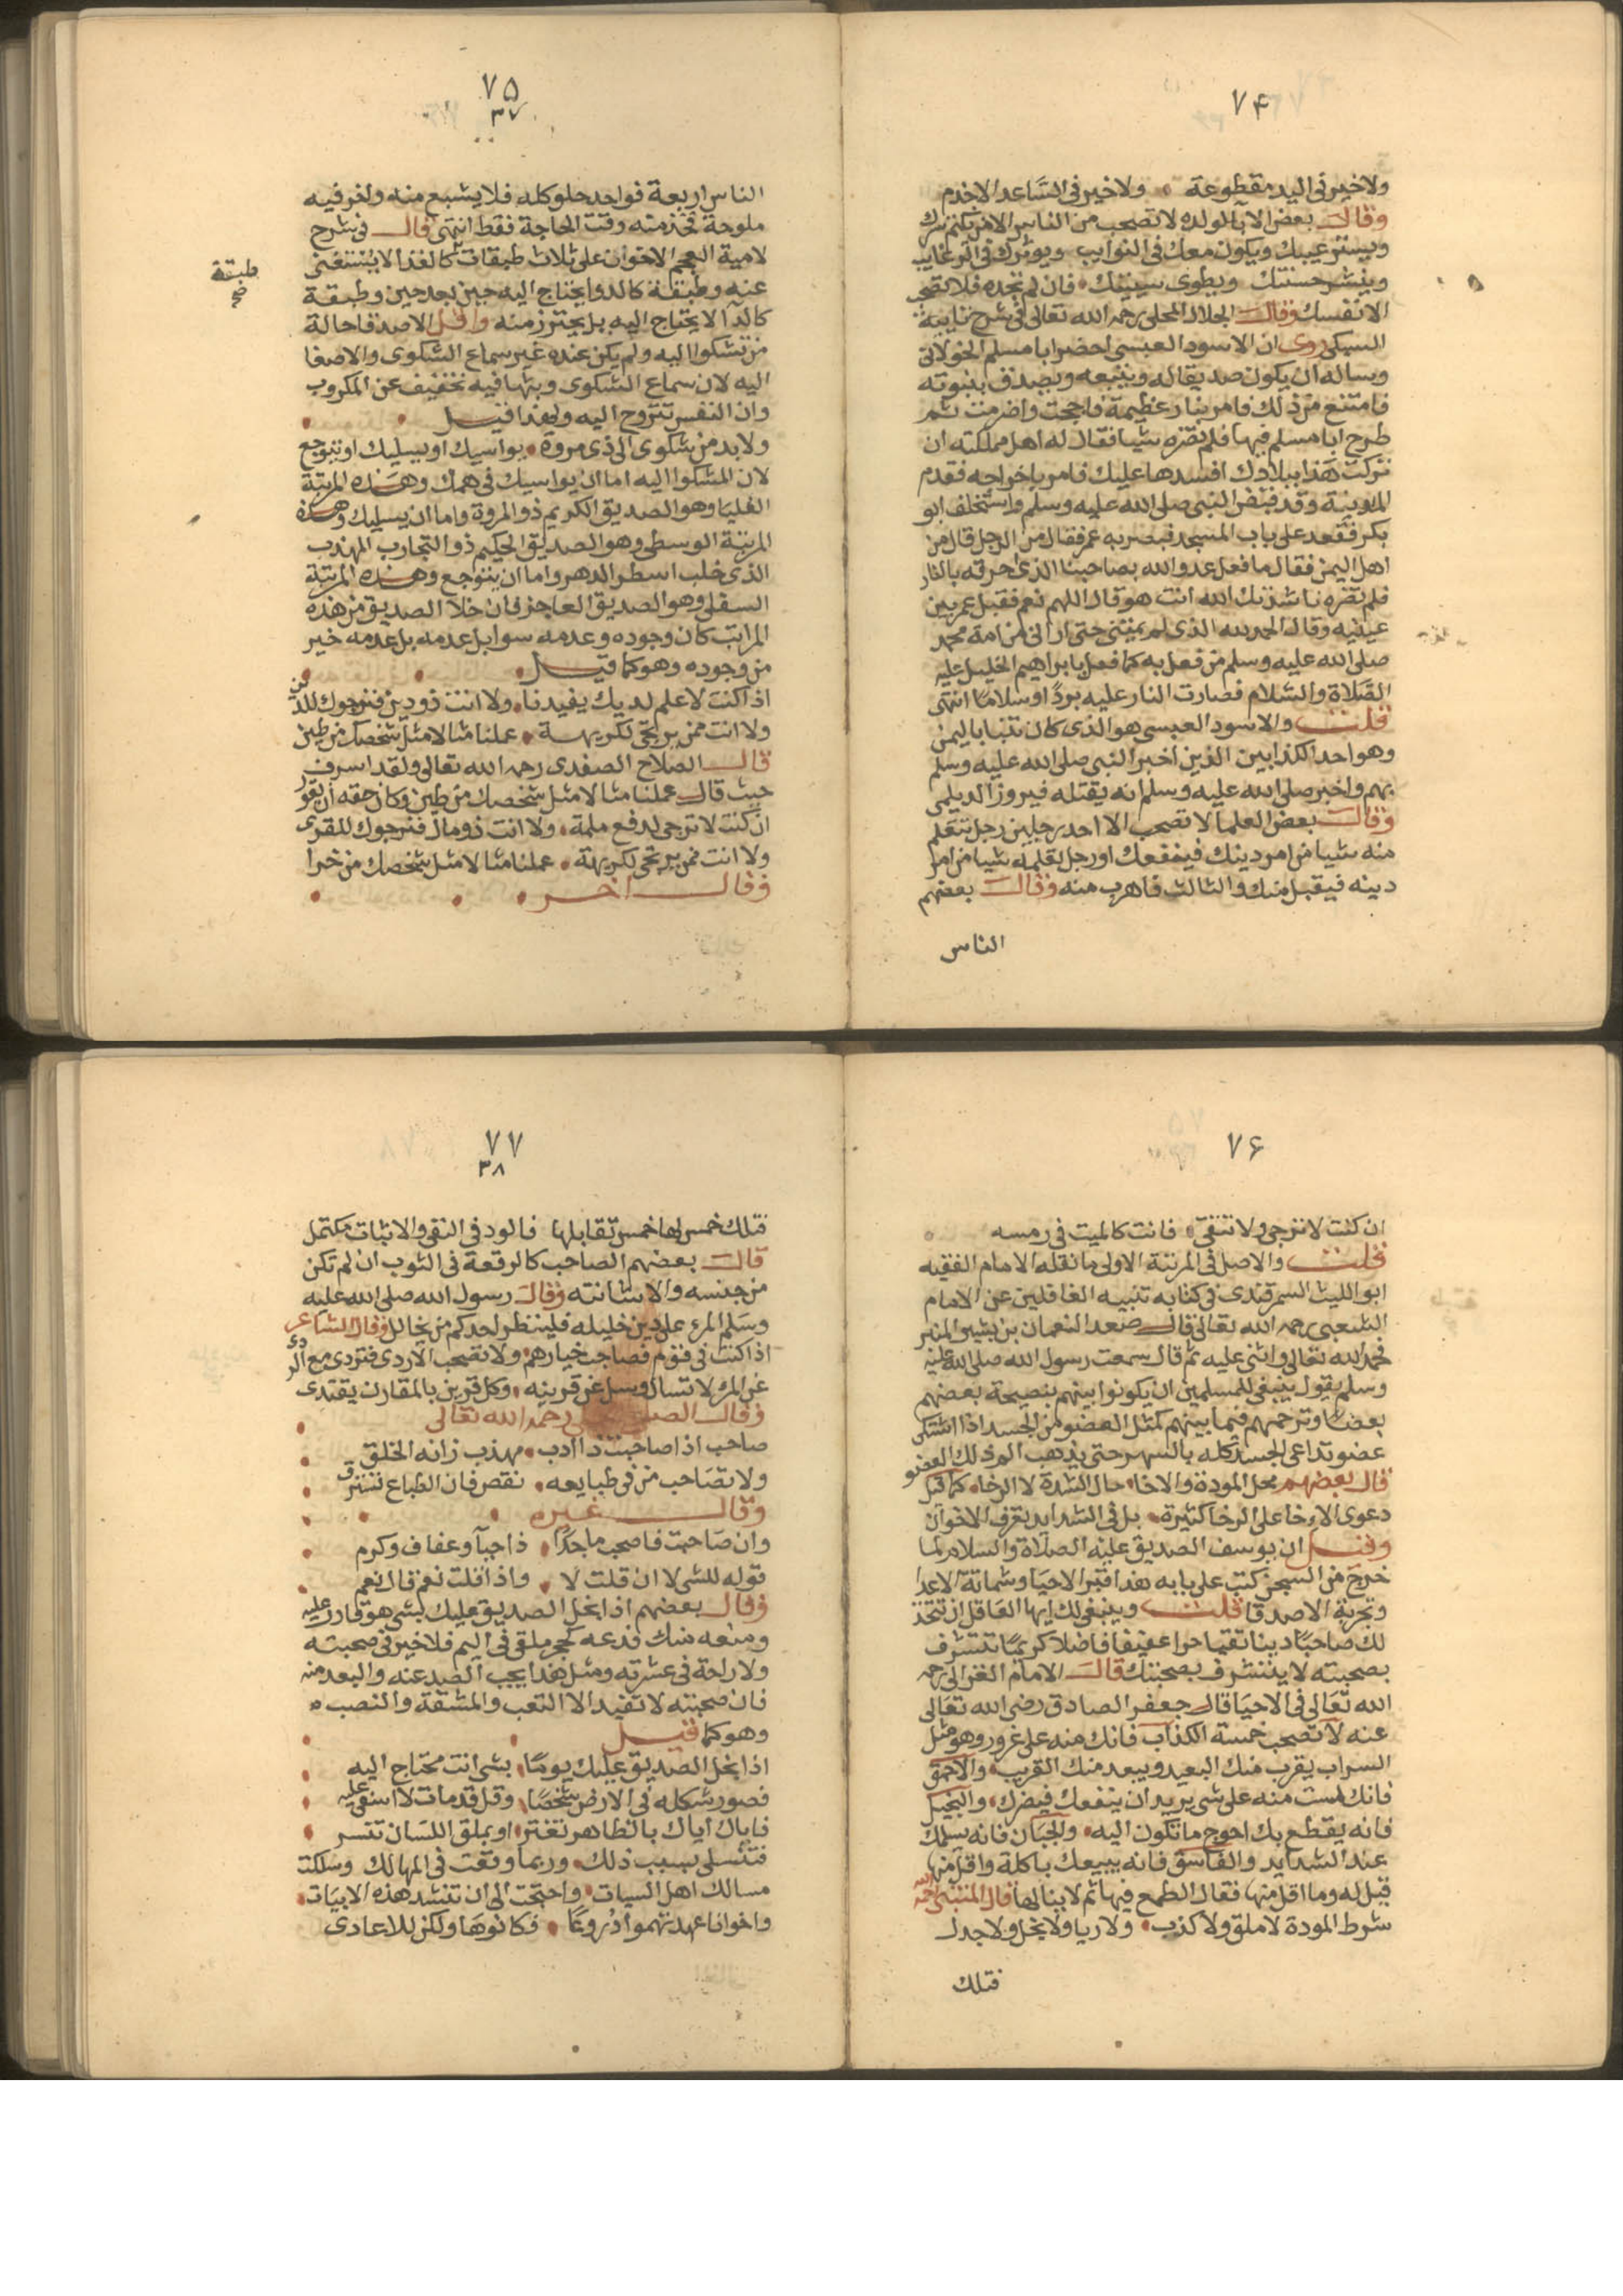 ٧۴
ولا خير في اليد مقطوعة ولا خير في الساعد الاخدم
وقالت بعض الابا لولده لا تصحب من الناس الا من يكتم سرك
ويستر عيبك ويكون معك في النوايب ويوثرك في الرغايب
وينشر حسنتك ويطوى سييتك فان لم تجده فلا تصحب
الا نفسك وقال الجلال المحلى رحمه الله تعالى في شرح تاييه
السبكى روى ان الاسود العبسى احضر ابا مسلم الخولانى
وساله ان يكون صديقا له ويتبعه ويصدق بنبوته
فامتنع من ذلك فامر بنار عظيمة فاججت واضرمت ثم
طرح ابا مسلم فيها فلم تضره شيا فقال له اهل مملكته ان
تركت هذا ببلادك افسدها عليك فامر باخراجه فقدم
المدينة وقد قبض النبى صلى الله عليه وسلم واستخلف ابو
بكر فقعد على باب المسجد فبصر به عمر فقال من الرجل قال من
اهل اليمن فقال ما فعل عدو الله بصاحبنا الذى احرقه بالنار
فلم تضره ناشدتك الله انت هو قال اللهم نعم فقبل عمر بين
عينيه وقال الحمد لله الذى لم يمتنى حتى ارانى من امة محمد
صلى الله عليه وسلم من فعل به كما فعل بابراهيم الخليل عليه
الصلاة والسلام فصارت النار عليه بردا وسلاما انتهى
قلت والاسود العبسى هو الذى كان تنبا باليمن
وهو احد الكذابين الذين اخبر النبى صلى الله عليه وسلم
بهم واخبر صلى الله عليه وسلم انه يقتله فيروز الديلمى
وقالت بعض العلما لا تصحب الا احد رجلين رجل تتعلم
منه شيا من امر دينك فينفعك او رجل تعلمه شيا من امر
دينه فيقبل منك والثالث فاهرب منه وقالت بعضهم
الناس
٧۵
٣٧
الناس اربعة فواحد حلو كله فلا يشبع منه واخر فيه
ملوحة فخذ منه وقت الحاجة فقط انتهى قال في شرح
لامية العجم الاخوان على ثلاث طبقات كالغذا لا يستغنى
عنه وطبقة كالدوا يحتاج اليه حين بعد حين وطبقة
كالدآ لا يحتاج اليه بل يحترز منه واقل الاصدقا حالة
من تشكوا اليه ولم يكن عنده غير سماع الشكوى والاصغا
اليه لان سماع الشكوى وبثها فيه تخفيف عن المكروب
وان النفس تتروح اليه ولهذا قيل
ولا بد من شكوى الى ذى مروة يواسيك او يسليك او يتوجع
لان المشكوا اليه اما ان يواسيك في همك وهذه المرتبة
العليا وهو الصديق الكريم ذو المروة واما ان يسليك وهذه
المرتبة الوسطى وهو الصديق الحكيم ذو التجارب المهذب
الذى حلب اسطر الدهر واما ان يتوجع وهذه المرتبة
السفلى وهو الصديق العاجز فان خلا الصديق من هذه
المراتب كان وجوده وعدمه سوا بل عدمه بل عدمه خير
من وجوده وهو كما قيل
اذا كنت لا علم لديك يفيدنا ولا انت ذو دين فنرجوك للدين
ولا انت ممن يرتجى لكريهة عملنا مثالا مثل شخصك من طين
قال الصلاح الصفدى رحمه الله تعالى ولقد اسرف
حيث قال عملنا مثالا مثل شخصك من طين وكان حقه ان يقول
ان كنت لا ترجى لدفع ملمة ولا انت ذو مال فنرجوك للقرى
ولا انت ممن يرتجى لكريهة عملنا مثالا مثل شخصك من خرا
وقال اخر
طبقة
صح
٧۶
ان كنت لا ترجى ولا تتقى فانت كالميت في رمسه
قلت والاصل في المرتبة الاولى ما نقله الامام الفقيه
ابو الليث السمرقندى في كتابه تنبيه الغافلين عن الامام
الشعبى رحمه الله تعالى قال صعد النعمان بن بشير المنبر
فحمد الله تعالى واثنى عليه ثم قال سمعت رسول الله صلى الله عليه
وسلم يقول ينبغى للمسلمين ان يكونوا بينهم بنصيحة بعضهم
بعضا وتراحمهم فيما بينهم كمثل العضو من الجسد اذا اشتكى
عضو تداعى الجسد كله بالسهر حتى يذهب الم ذلك العضو
قال بعضهم محل المودة والاخا حال الشدة لا الرخا كما قيل
دعوى الاخا على الرخا كثيرة بل في الشدايد تعرف الاخوان
وقيل ان يوسف الصديق عليه الصلاة والسلام لما
خرج من السجن كتب على بابه هذا قبر الاحيا وشماتة الاعدا
وتجربة الاصدقا قلت وينبغى لك ايها العاقل ان تتخذ
لك صاحبا دينا تقيا حرا عفيفا فاضلا كريما تتشرف
بصحبته لا يتشرف بصحبتك قال الامام الغزالى رحمه
الله تعالى في الاحيا قال جعفر الصادق رضى الله تعالى
عنه لا تصحب خمسة الكذاب فانك منه على غرور وهو مثل
السراب يقرب منك البعيد ويبعد منك القريب والاحمق
فانك لست منه على شى يريد ان ينفعك فيضرك والبخيل
فانه يقطع بك احوج ما تكون اليه والجبان فانه يسلمك
عند الشدايد والفاسق فانه يبيعك باكلة واقل منها
قيل له وما اقل منها فقال الطمع فيها ثم لا ينالها قال المتنبى رحمه الله
شرط المودة لا ملق ولا كذب ولا ريا ولا بخل ولا جدل
فتلك
٧٧
٣٨
فتلك خمس لها خمس تقابلها فالود في النفى والاثبات مكتمل
قالت بعضهم الصاحب كالرقعة في الثوب ان لم تكن
من جنسه والا شانته وقال رسول الله صلى الله عليه
وسلم المرء على دين خليله فلينظر احدكم من يخالل وقال الشاعر
اذا كنت في قوم فصاحب خيارهم ولا تصحب الاردى فتردى مع الردى
عن المرء لا تسال وسل عن قرينه وكل قرين بالمقارن يقتدى
وقال رحمه الله تعالى
صاحب اذا صاحبت ذا ادب مهذب زانه الخلق
ولا تصاحب من في طبايعه نقص فان الطباع تسترق
وقال غيره
وان صاحبت فاصحب ماجدا ذا حيآ وعفاف وكرم
قوله للشى لا ان قلت لا واذا قلت نعم قال نعم
وقال بعضهم اذا بخل الصديق عليك بشى هو قادر عليه
ومنعه منك فدعه كحجر ملقى في اليم فلا خير في صحبته
ولا راحة في عشرته ومثل هذا يجب الصد عنه والبعد منه
فان صحبته لا تفيد الا التعب والمشقة والنصب
وهو كما قيل
اذا بخل الصديق عليك يوما بشى انت محتاج اليه
فصور شكله في الارض شخصا وقل قد مات لا اسفى عليه
فاياك اياك بالظاهر تغتر او بملق اللسان تنسر
فتتسلى بسبب ذلك وربما وقعت في المهالك وسلكت
مسالك اهل السيات واحتجت الى ان تنشد هذه الابيات
واخوانا عهدتهموا دروعا فكانوها ولكن للاعادى